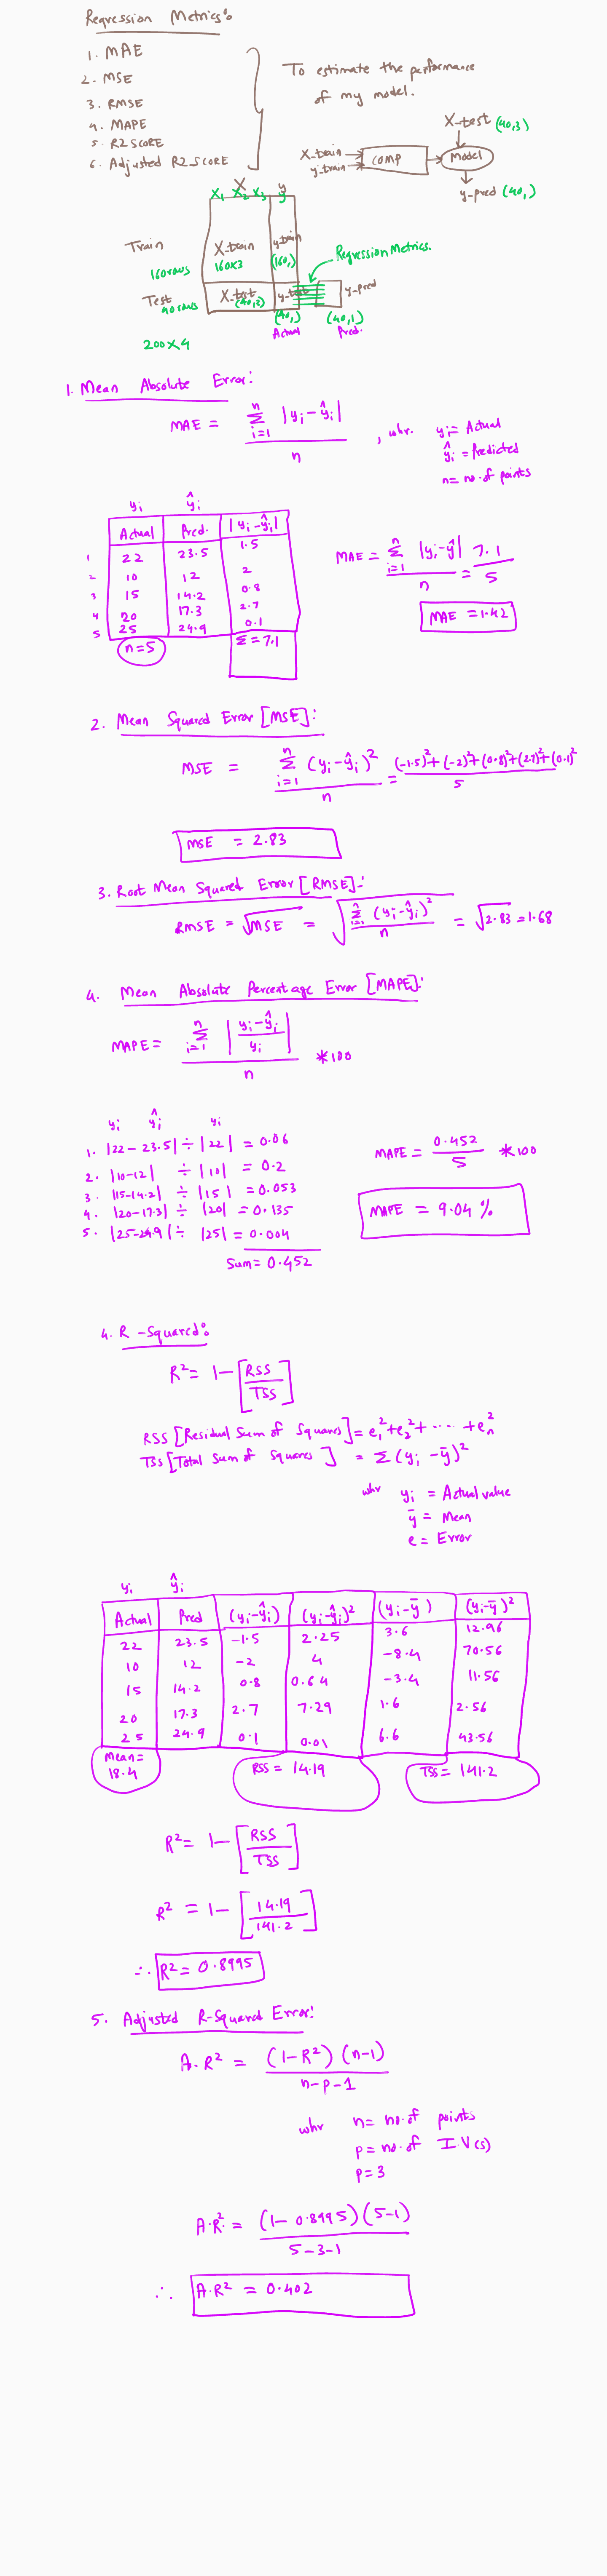 Regression Metrics:
1. MAE
2. MSE
3. RMSE
4. MAPE
5. R2 SCORE
6. Adjusted R2_SCORE
To estimate the performance
of my model.
X_test (40,3)
X_train
y_train
COMP
Model
y_pred (40,)
X y
X1 X2 X3 y
Train
160 rows
X_train
160x3
y_train
(160,)
Regression Metrics.
Test
40 rows
X_test
(40,3)
y_test
y_pred
(40,)
(40,1)
Actual
Pred.
200x4
1. Mean Absolute Error:
MAE = Σ i=1 n |yi-ŷi| / n , whr. yi= Actual
ŷi = Predicted
n= no. of points
yi ŷi
Actual Pred. |yi-ŷi|
1 22 23.5 1.5
2 10 12 2
3 15 14.2 0.8
4 20 17.3 2.7
5 25 24.9 0.1
n=5 Σ=7.1
MAE = Σ i=1 n |yi-ŷ| / n = 7.1 / 5
MAE = 1.42
2. Mean Squared Error [MSE]:
MSE = Σ i=1 n (yi-ŷi)² / n = (-1.5)²+(-2)²+(0.8)²+(2.7)²+(0.1)² / 5
MSE = 2.83
3. Root Mean Squared Error [RMSE]:
RMSE = √MSE = √Σ i=1 n (yi-ŷi)² / n = √2.83 = 1.68
4. Mean Absolute Percentage Error [MAPE]:
MAPE = Σ i=1 n |yi-ŷi / yi| / n *100
yi ŷi yi
1. |22-23.5| ÷ |22| = 0.06
2. |10-12| ÷ |10| = 0.2
3. |15-14.2| ÷ |15| = 0.053
4. |20-17.3| ÷ |20| = 0.135
5. |25-24.9| ÷ |25| = 0.004
Sum = 0.452
MAPE = 0.452 / 5 *100
MAPE = 9.04 %
4. R-Squared:
R² = 1-[RSS / TSS]
RSS [Residual Sum of Squares] = e1²+e2²+ ···· +en²
TSS [Total Sum of Squares] = Σ(yi-ȳ)²
whr yi = Actual value
ȳ = Mean
e = Error
yi ŷi
Actual Pred (yi-ŷi) (yi-ŷi)² (yi-ȳ) (yi-ȳ)²
22 23.5 -1.5 2.25 3.6 12.96
10 12 -2 4 -8.4 70.56
15 14.2 0.8 0.64 -3.4 11.56
20 17.3 2.7 7.29 1.6 2.56
25 24.9 0.1 0.01 6.6 43.56
Mean = 18.4
RSS = 14.19
TSS = 141.2
R² = 1-[RSS / TSS]
R² = 1-[14.19 / 141.2]
∴ R² = 0.8995
5. Adjusted R-Squared Error:
A.R² = (1-R²)(n-1) / n-p-1
whr n= no. of points
p= no. of I.V(s)
p=3
A.R² = (1-0.8995)(5-1) / 5-3-1
∴ A.R² = 0.402